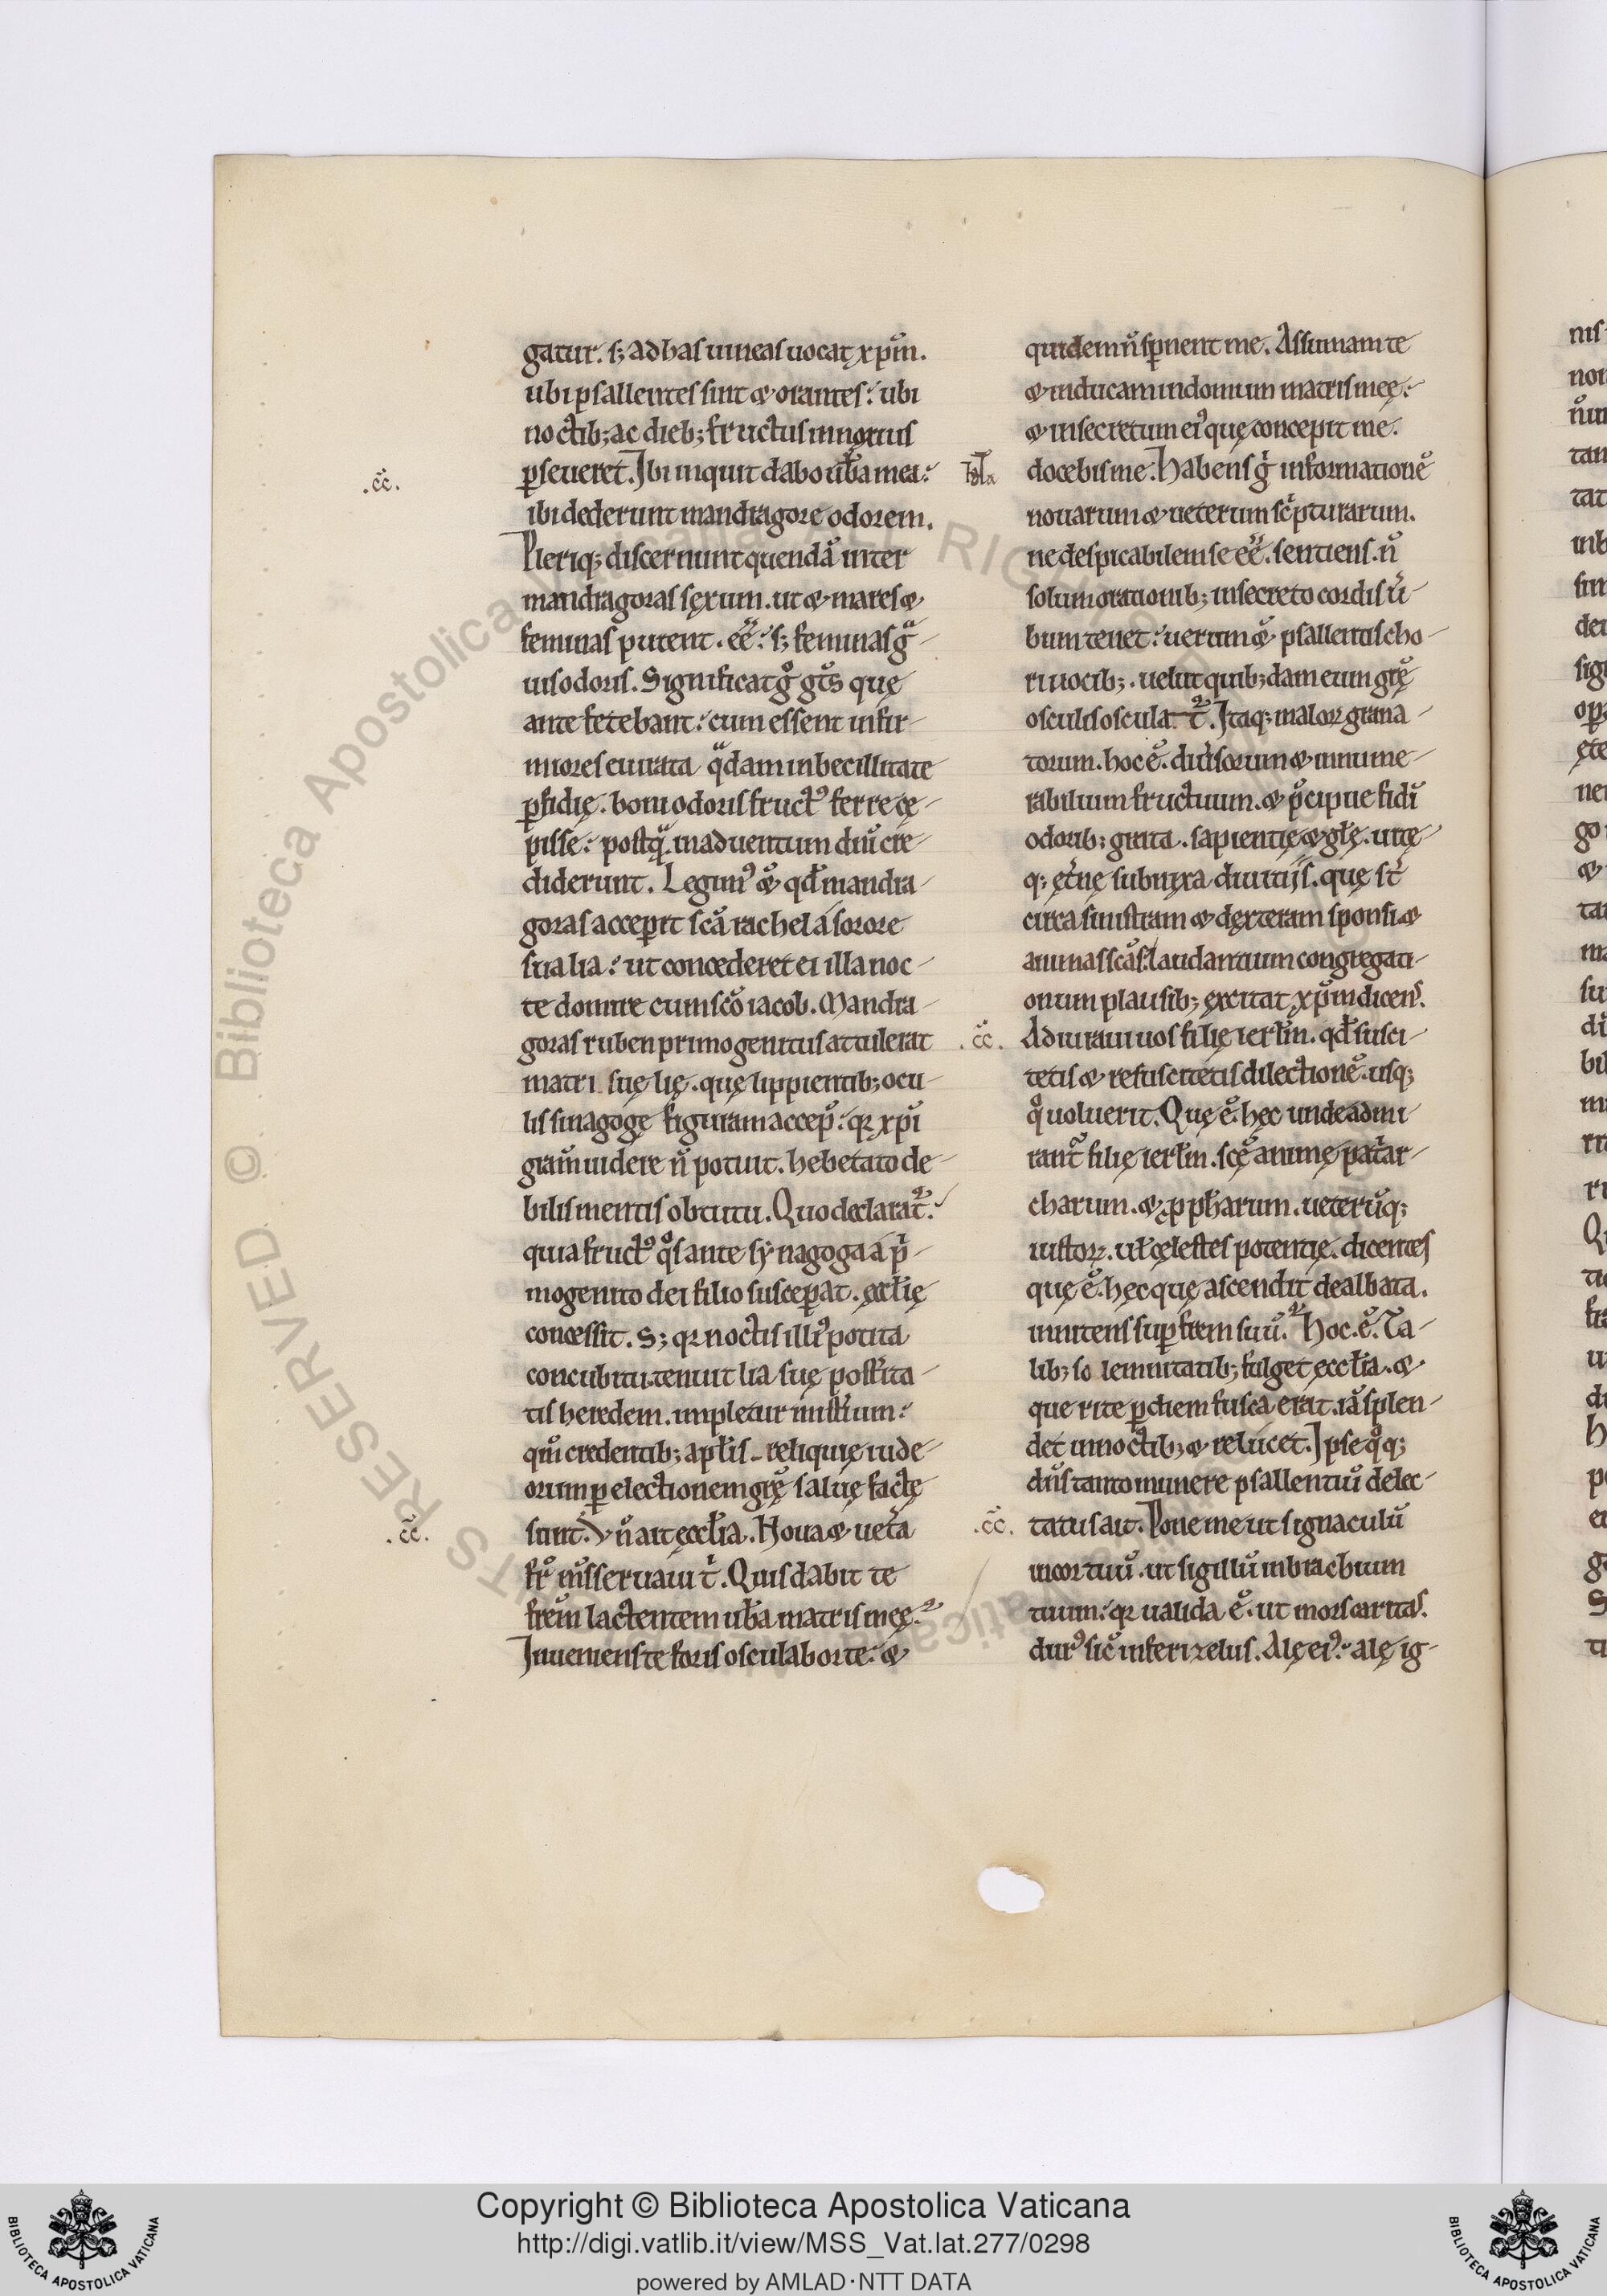 gatur. s; ad has uineas uocat xp̄m.
ubi psallentes sint & orantes: ubi
noctib; ac dieb; fructus innouus
ꝑseueret. Ibi inquit dabo ub̄a mea:
.cc̄.
ibi dederunt mandragore odorem.
Pleriq; discernunt quendā inter
mandragoras sęxum. ut & mares &
feminas putent. eē: s; feminas gͣ
uis odoris. Significat gͦ gt̄s quę
ante fetebant: cum essent infir
miores euirata qͣdam inbecillitate
ꝑfidię. boni odoris fructꝰ ferre cę
pisse: postqͣ. in aduentum diū cre
diderunt. Legimꝰ & qd̄ mandra
goras acceꝑit sc̄a rachel a sorore
sua lia: ut concederet ei illa noc
te dormire cum sc̄o iacob. Mandra
goras ruben primogenitus attulerat
matri suę lię. quę lippientib; ocu
lis sinagogę figuram accep̄: qꝛ xp̄i
gram̄ uidere n̄ potuit. hebetato de
bilis mentis obtutu. Quo declarat᷑.
quia fructꝰ qͦs ante sẏnagoga a pͥ
mogenito dei filio susceꝑat. ęccl̄ię
concessit. S; qꝛ noctis illiꝰ potita
concubitu. tenuit lia suę post̄ita
tis heredem. impletur mist̄ium:
qm̄ credentib; apl̄is reliquię iude
orum ꝑ electionem grę̄ saluę factę
sunt. Vn̄ ait ęccl̄ia. Noua & uet̄a
.cc̄.
fr̄ m̄s seruaui t̄. Quis dabit te
frem̄ lactentem ub̄a matris meę.
Inueniens te foris osculabor te: &
quidem n̄ sꝑnent me. Assumam te
& inducam in domum matris meę:
& in secretum eiꝰ quę concepit me.
docebis me. Habens gͥ informationē
nouarum & ueterum sc̄pturarum.
ne despicabilem se eē. sentiens. n̄
solum orationib; in secreto cordis ū
bum tenet: uerum & psallentis cho
ri uocib;. uelut quib;dam eum grę̄
osculis oscula t᷑. Itaq; maloꝝ grana
torum. hoc ē. diūsorum & innume
rabilium fructuum. & p̄cipue fidī
odorib; grata. sapientię & gl̄ę. uitę
q; ęt̄nę subnixa diuitiis. quę st̄
circa sinistram & dęxteram sponsi &
animas sc̄as laudantium congregati
onum plausib; excitat xp̄m dicens.
.cc̄.
Adiuraui uos filię ierl̄m. qd̄ susci
tetis & resuscitetis dilectionē. usq;
qͦ uoluerit. Quę ē. hęc unde admi
rant᷑ filię ierl̄m. scę̄ animę pat̄ar
charum. & ꝓph̄arum. ueterūq;
iustoꝝ. ul̄ cęlestes potentię. dicentes
quę ē. hęc quę ascendit dealbata.
innitens suꝑ frem suū. Hoc. ē. Ta
lib; so lemnitatib; fulget eccl̄ia. &
que rite ꝑ diem fusca erat. iā splen
det in noctib; & relucet. Ipse qͦq;
dn̄s tanto munere psallentiū delec
.cc̄.
tatus ait. Pone me ut signaculū
in cor tuū. ut sigillū in brachium
tuum: qꝛ ualida ē. ut mors caritas.
durꝰ sic̄ inferi zelus. Alę eiꝰ: alę ig
Copyright © Biblioteca Apostolica Vaticana
http://digi.vatlib.it/view/MSS_Vat.lat.277/0298
powered by AMLAD·NTT DATA